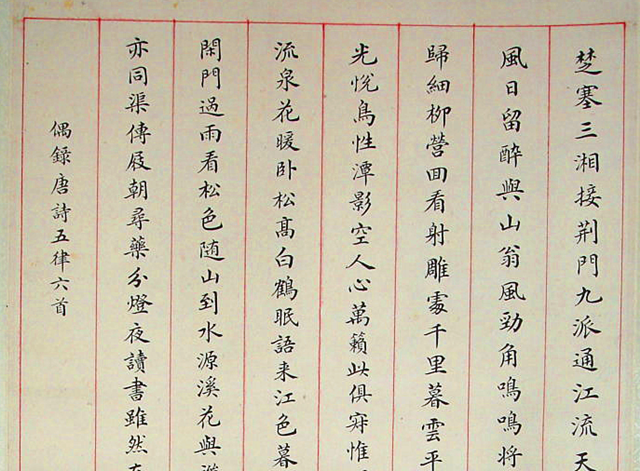 楚塞三湘接荆門九派通江流天
風日留醉與山翁風勁角鳴鳴將
歸細柳營囬看射雕處千里暮雲平
光悅鳥性潭影空人心萬籟此俱寂惟
流泉花暖卧松髙白鶴眠語来江色暮
閑門過雨看松色随山到水源溪花與
亦同渠傳屐朝尋藥分燈夜讀書雖然
偶錄唐詩五律六首